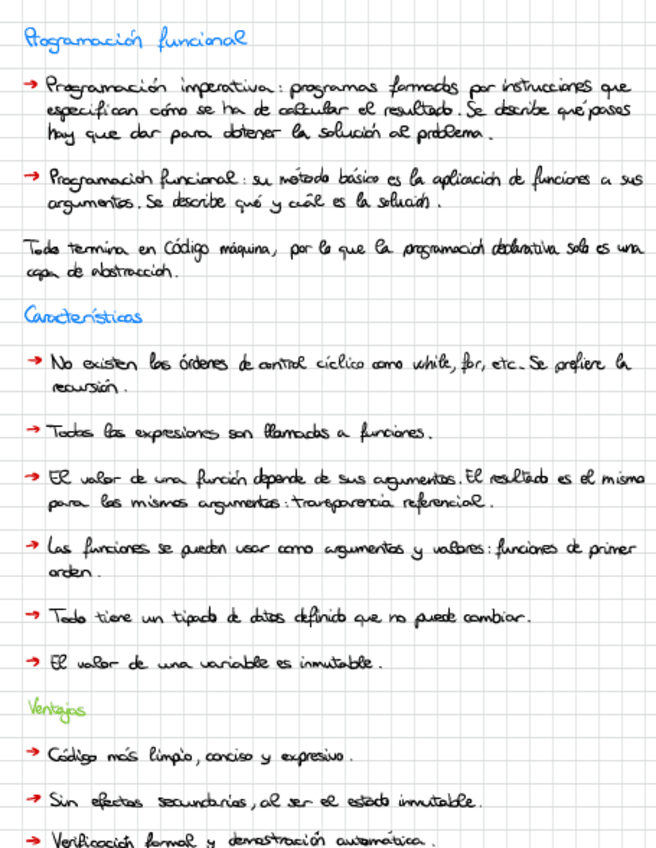 Programación funcional
→ Programación imperativa: programas formados por instrucciones que
especifican cómo se ha de calcular el resultado. Se describe qué pasos
hay que dar para obtener la solución al problema.
→ Programación funcional: su método básico es la aplicación de funciones a sus
argumentos. Se describe qué y cuál es la solución.
Todo termina en código máquina, por lo que la programación declarativa solo es una
capa de abstracción.
Características
→ No existen las órdenes de control cíclico como while, for, etc. Se prefiere la
recursión.
→ Todas las expresiones son llamadas a funciones.
→ El valor de una función depende de sus argumentos. El resultado es el mismo
para los mismos argumentos: transparencia referencial.
→ Las funciones se pueden usar como argumentos y valores: funciones de primer
orden.
→ Todo tiene un tipado de datos definido que no puede cambiar.
→ El valor de una variable es inmutable.
Ventajas
→ Código más limpio, conciso y expresivo.
→ Sin efectos secundarios, al ser el estado inmutable.
→ Verificación formal y demostración automática.